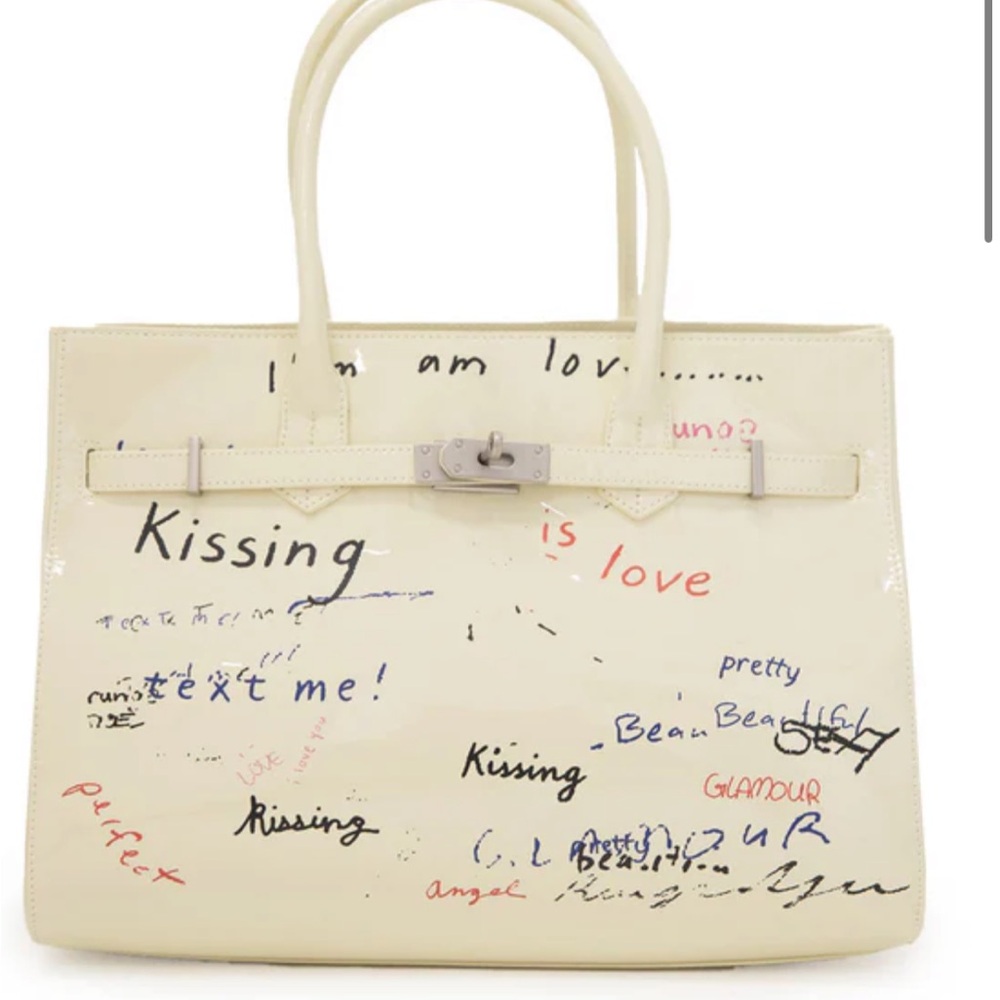 I'm am lov........
Kissing
is
love
text me!
pretty
Beau Beautiful
SEXY
LOVE
love you
Kissing
GLAMOUR
perfect
Kissing
pretty
angel